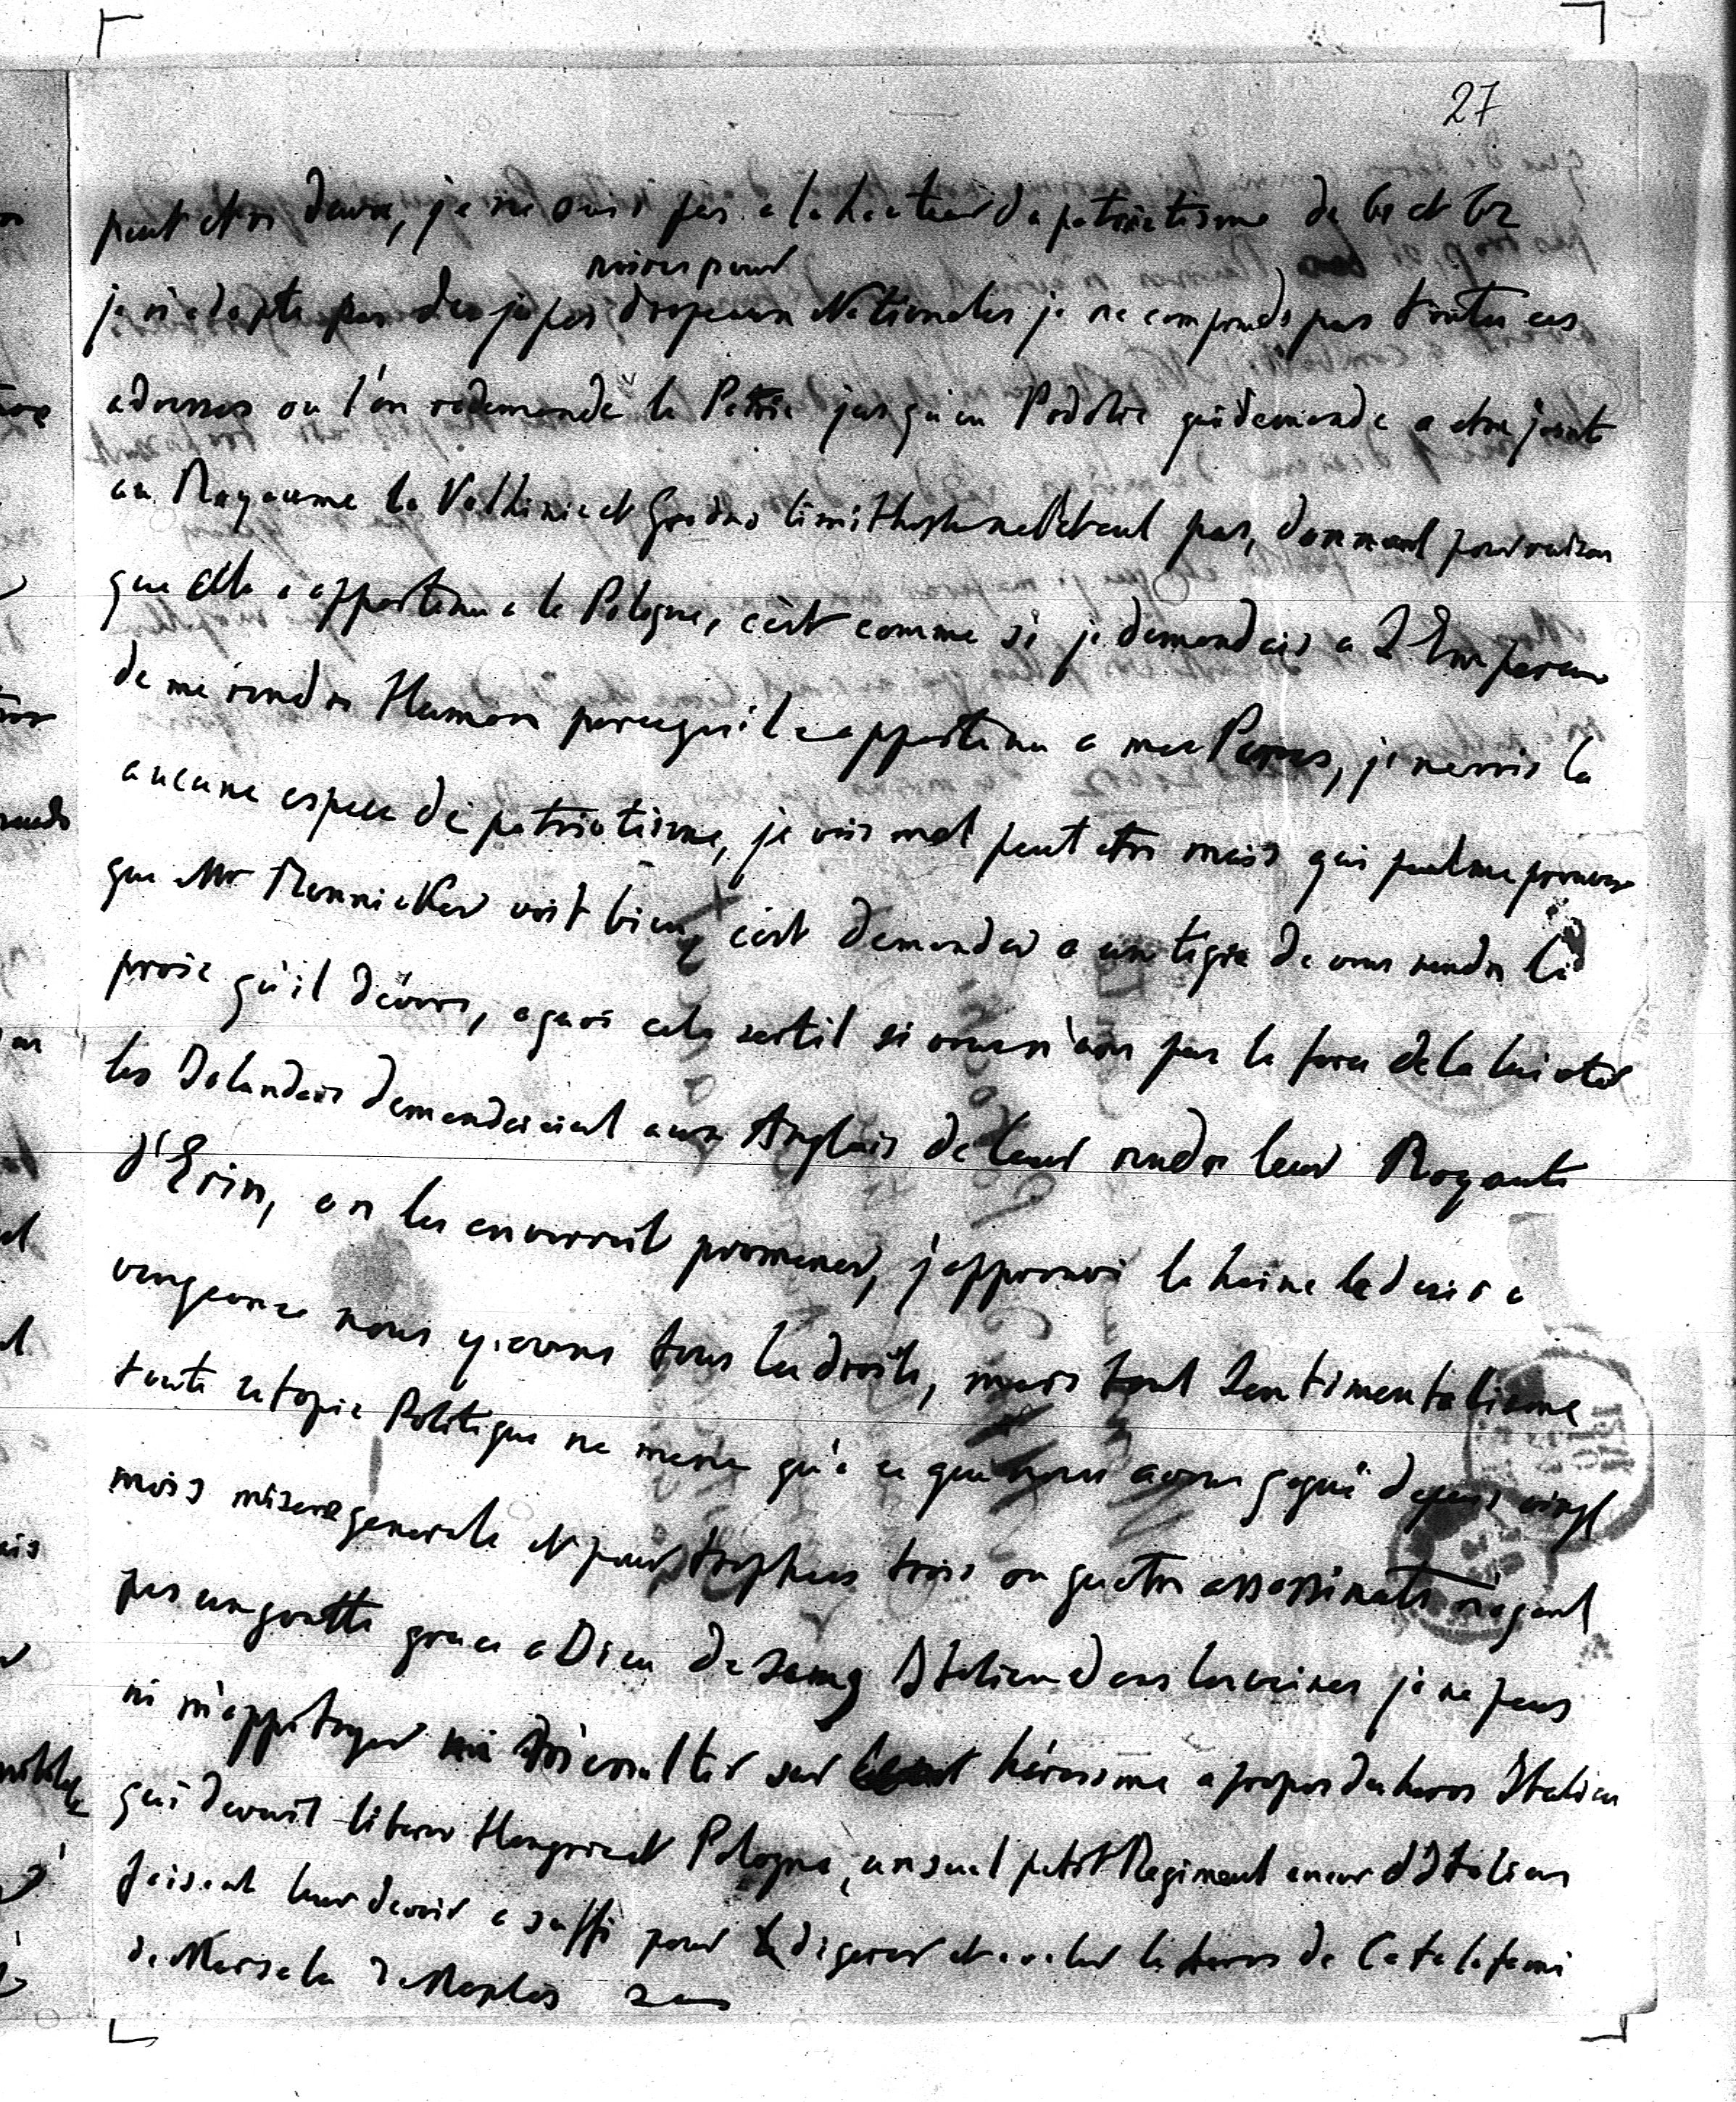 27
peut etre deux, je ne suis pas a la hauteur du patriotisme de 61 et 62
noires pour
je n'adopte pas des jupes drapeaux Nationales je ne comprends pas toutes ces
adresses ou l'on redemande la Patrie jusqu'en Podolie qui demande a etre jointe
au Royaume la Volhinie et Grodno limithrophe ne le veut pas, donnant pour raison
que elle a appartenu a la Pologne, c'est comme si je demandais a L'Empereur
de me rendre Humon parcequ'il a appartenu a mes Peres, je ne vois la
aucune espece de patriotisme, je vois mal peut etre mais qui peut me prouver
que Mr voit bien, c'est demander a un tigre de vous rendre la
proie qu'il devore, a quoi cela sertil si vous n'avez pas la force de la lui oter
les Islandais demanderaient aux Anglais de leur rendre leur Royaute
d'Erin, on les enverrait promener, j'approuve la haine le desir a
vengeance nous y avons tous les droits, mais tout Sentimentalisme
toute utopie Politique ne mene qu'a ce que nous avons gagné depuis vingt
mois misere generale et pour trophees trois ou quatre assassinats n'ayant
pas un goutte grace a Dieu de sang Italien dans les veines je ne peus
ni m'appitoyer ni m'exulter sur heroisme a propos du heros Italien
qui devait liberer Hongrie et Pologne, un seul petit Regiment encor d'Italiens
faisant leur devoir a suffi pour digerer et avaler le heros de Catalafami
de Marsala de Naples